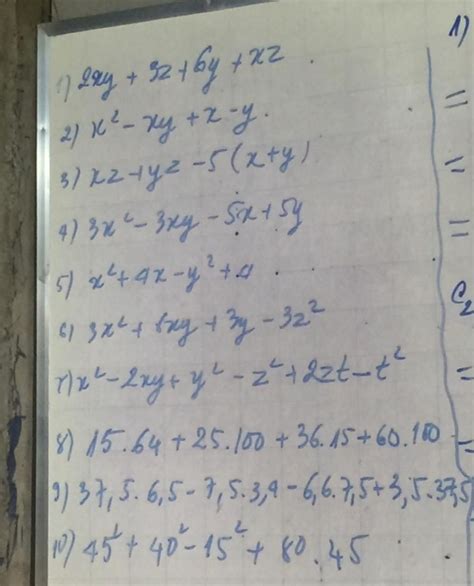 1) 2xy + 3z + 6y + xz
2) x² - xy + x - y.
3) xz + yz - 5(x + y)
4) 3x² - 3xy - 5x + 5y
5) x² + 4x - y² + 4
6) 3x² + 6xy + 3y - 3z²
7) x² - 2xy + y² - z² + 2zt - t²
8) 15.64 + 25.100 + 36.15 + 60.100
9) 37,5.6,5 - 7,5.3,4 - 6,6.7,5 + 3,5.37,5
10) 45² + 40² - 15² + 80.45
1)
=
=
=
C2
=
=